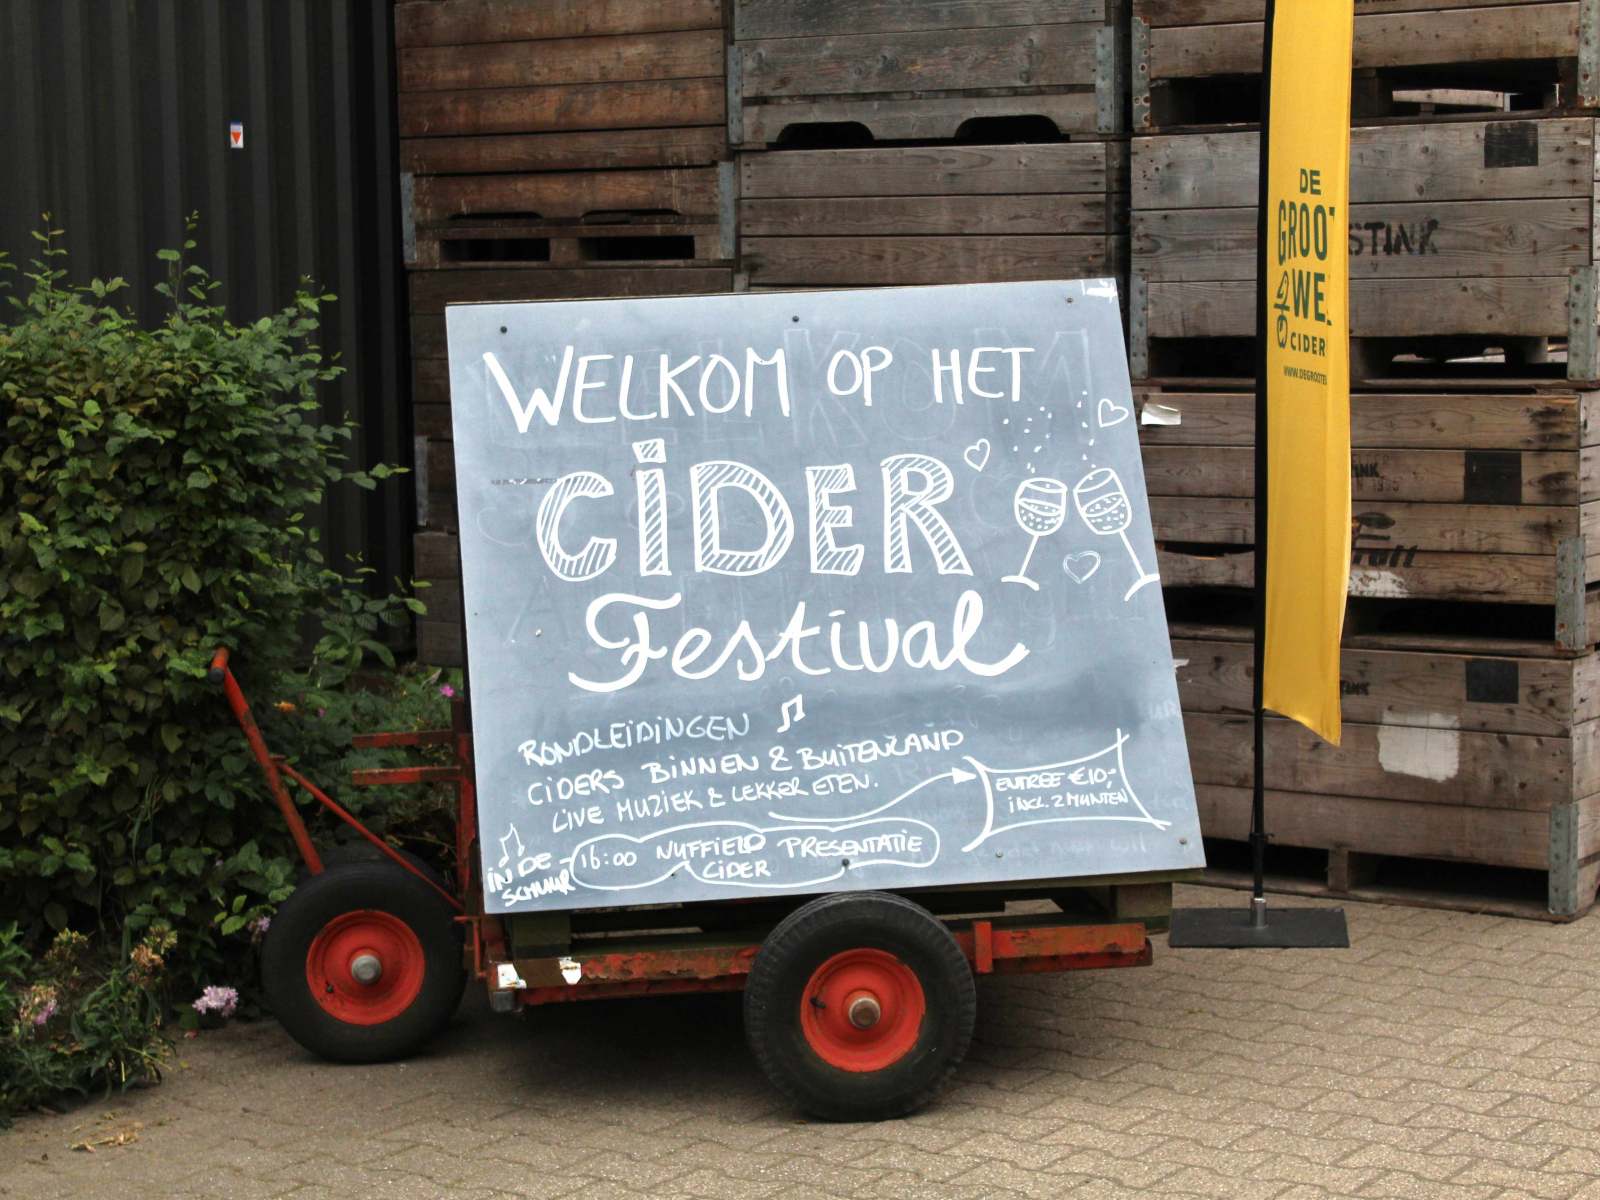 WELKOM OP HET
CiDER
Festival
RONDLEIDINGEN
CIDERS BINNEN & BUITENLAND
LIVE MUZIEK & LEKKER ETEN.
ENTREE €10,-
INCL. 2 MUNTEN
IN DE
SCHUUR
16:00 NUFFIELD PRESENTATIE
CIDER
DE
GROOT
WE
CIDER
WWW.DEGROOTE
STINK